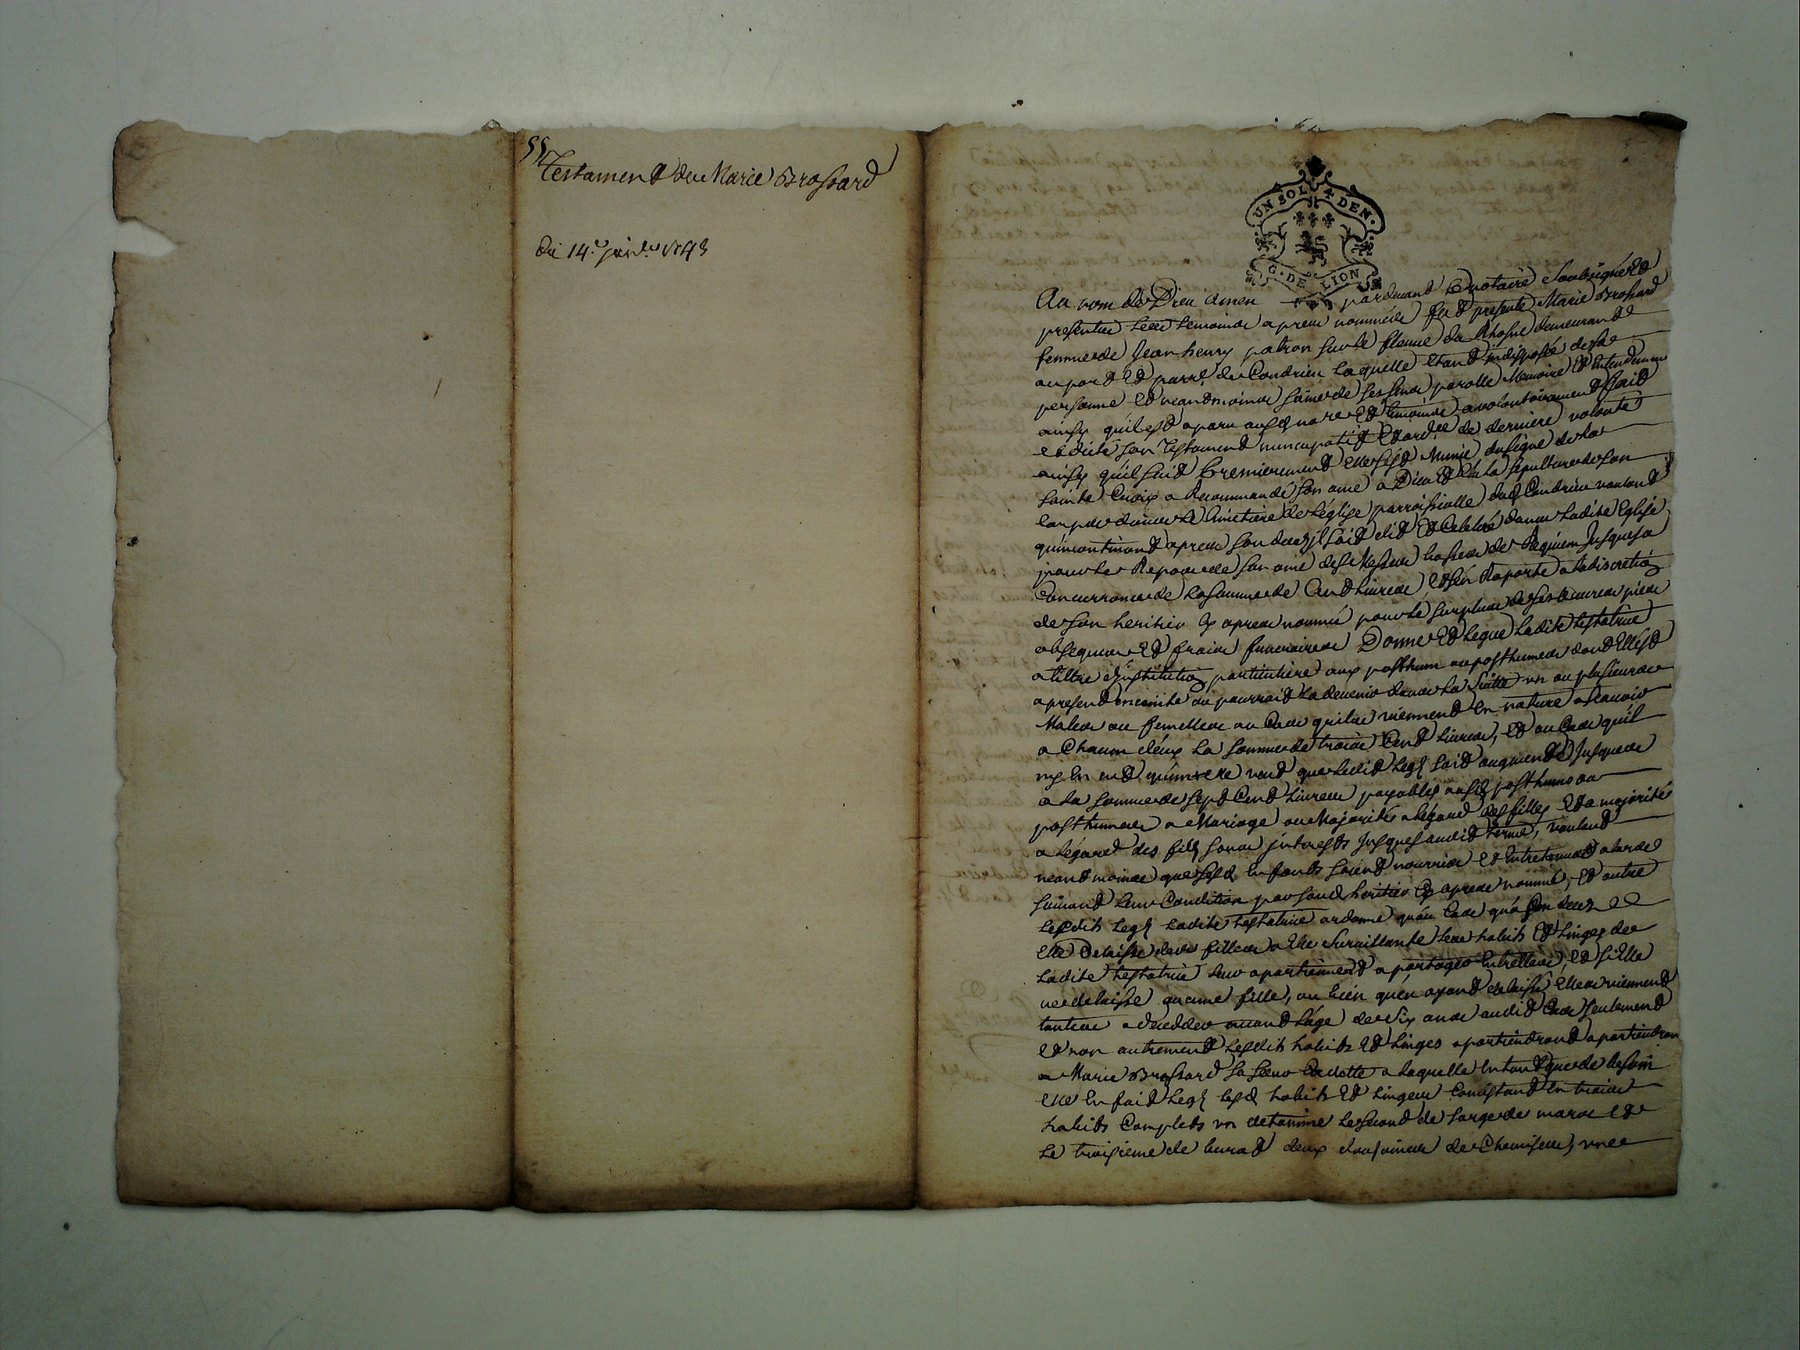 55
Testament de Marie Brossard
Du 14.e janv.er 1743
UN SOL 4 DEN.
G. DE LION
Au nom de Dieu amen pardevant le notaire soubsigné et
presentes les temoins apres nommés fut presente Marie Brossard
femme de Jean henry patron sur le fleuve du Rhosne demeurant
au port et parr.e de Condrieu laquelle etant indisposée de sa
personne et neandmoins saine de ses sens parolle Memoire et entendement
ainsy quil est aparu ausd no.re et temoins a volontairement fait
et dicté son testament nuncupatif et ord.ce de derniere volonté
ainsy quil suit Premierement elle sest Munie du signe de la
sainte Croix a Recommandé son ame a Dieu et elu la sepulture de son
corps dans le Cimetiere de léglise parroissialle dud Condrieu voulant
quincontinant apres son decez il soit dit et Celebré dans ladite Eglise
pour le Repos de son ame des Messes basses de Requiem jusques a
Concurrance de la somme de Cent livres, et sen Raporte a la discretion
de son heritier cy apres nommé pour le surplus de ses œuvres pies
obseques et frais funeraires Donne et legue ladite testatrice
a tiltre dinstitution particuliere aux posthum ou posthumes dont Elle est
a present enceinte ou pourroit la devenir dans la suitte un ou plusieurs
Males ou femelles au Cas quils viennent en nature a scavoir
a Chacun deux la somme de trois Cent livres, et au Cas quil
ny en eut quun elle veut que ledit legs soit augmenté jusques
a la somme de sept Cent livres payables ausd posthumes ou
posthumes a Mariage ou Majorité a légard des filles et a majorité
a légard des fils sans intrests jusques audit terme, voulant
neandmoins que lesd enfants soient nourris et entretenus
suivant leur Condition par sond heritier cy apres nommé, et outre
lesdits legs ladite testatrice ordonne quau Cas qua son decez
elle delaisse des filles a elle survivante les habits et linges de
ladite testatrice leur apartiennent a partager entrelles, et si elle
ne delaisse aucune fille, ou bien quen ayant delaissé elles viennent
toutes a decedder avant lage de six ans audit Cas seulement
et non autrement lesdits habits et linges apartiendront apartiendront
a Marie Brossard sa sœur Cadette a laquelle entant que de besoin
elle en fait legs lesd habits et linges Consistant en trois
habits Complets un detamine le second de sarge de maroc et
le troisieme de burat deux douzaines de Chemises, une